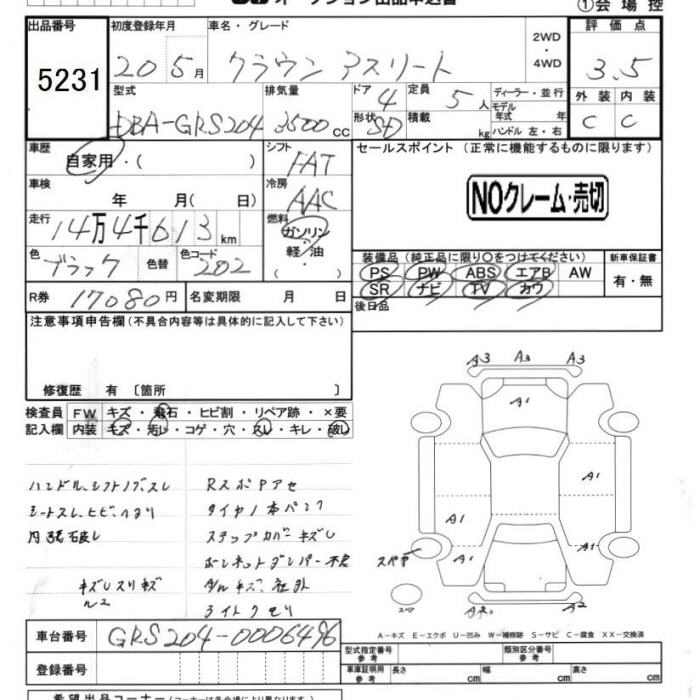 オークション出品申込書
①会場控
出品番号
5231
初度登録年月
20 5月
車名・グレード
クラウン アスリート
2WD
・
4WD
評価点
3.5
型式
DBA-GRS204
排気量
3500cc
ドア
4
定員
5人
形状
SD
積載
kg
ディーラー・並行
モデル年式 年
ハンドル 左・右
外装 内装
C C
車歴
自家用・( )
シフト
FAT
セールスポイント (正常に機能するものに限ります)
NOクレーム・売切
車検
年 月( 日)
冷房
AAC
走行
14万4千613km
燃料
ガソリン・
軽・油
・
色
ブラック
色替
色コード
202
装備品 (純正品に限り○をつけてください)
PS PW ABS エアB AW
SR ナビ TV カワ
新車保証書
有・無
R券 17080円
名変期限 月 日
後日品
注意事項申告欄 (不具合内容等は具体的に記入して下さい)
修復歴 有 〔箇所 〕
検査員 FW キズ・飛石・ヒビ割・リペア跡・×要
記入欄 内装 キズ・汚レ・コゲ・穴・スレ・キレ・破レ
ハンドル、シフトノブスレ
シートスレ、ヒビ、ヘタリ
内張破レ
キズ
Rスポ
タイヤ1本パンク
ステップカバーキズ
ボンネットダンパー不良
ライトクモリ
A3 A3 A3
A1
A1
A1
A1
A1 A1
スペア
A2
A-キズ E-エクボ U-凹み W-補修跡 S-サビ C-腐食 XX-交換済
車台番号 GRS204-0006496
登録番号
型式指定番号
参考
類別区分番号
参考
車庫証明用
参考
長さ cm
幅 cm
高さ cm
希望出品コーナー